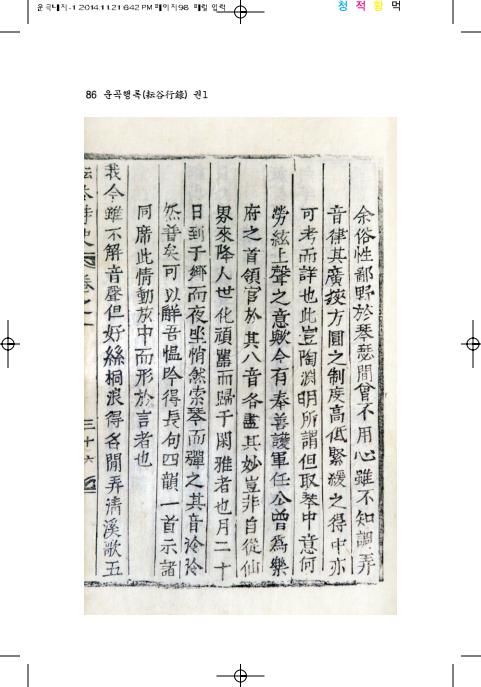 운곡내지-1 2014.11.21 6:42 PM 페이지98 매킬 입력
청 적 황 먹
86 운곡행록(耘谷行錄) 권1
余俗性鄙野於琴瑟間曾不用心雖不知調弄
音律其廣狹方圓之制度高低緊緩之得中亦
可考而詳也此豈陶淵明所謂但取琴中意何
勞絃上聲之意歟今有奉善護軍任公曾爲樂
府之首領官於其八音各盡其妙豈非自從仙
界來降人世化頑嚚而歸于閑雅者也月二十
日到于鄕而夜坐悄然索琴而彈之其音泠泠
然昔矣可以解吾慍吟得長句四韻一首示諸
同席此情動於中而形於言者也
我今雖不解音聲但好絲桐浪得名閒弄淸溪歌五
卷之一
三十六